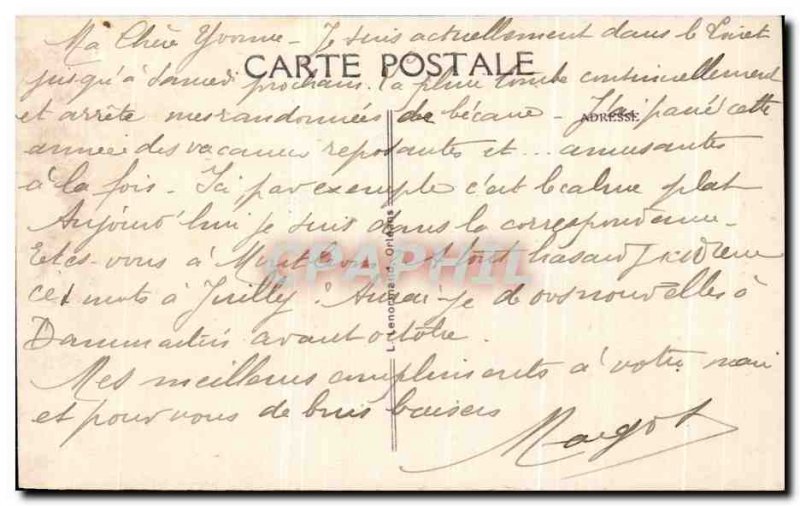 Ma Chère Yvonne - Je suis actuellement dans le Loiret
CARTE POSTALE
jusqu'à samedi prochain. La pluie tombe continuellement
et arrête mes randonnées de bécane - J'ai passé cette
ADRESSE
année des vacances reposantes et ... amusantes
à la fois - Ici par exemple c'est le calme plat
Aujourd'hui je suis dans la correspondance -
Etes-vous à . A tout hasard
ces mots à Juilly. Aurai-je de vos nouvelles à
Dammartin avant octobre.
Mes meilleurs compliments à votre mari
et pour vous de bons baisers
Margot
L. Lenormand, Orléans
CPAPHIL